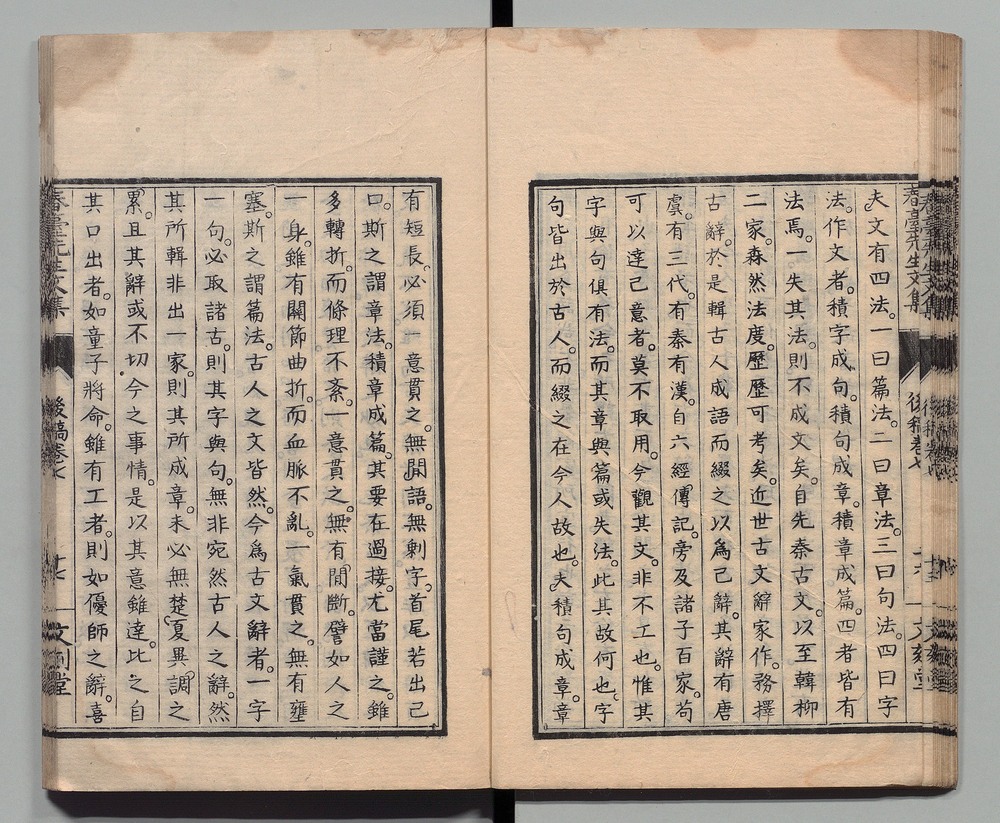 春臺先生文集
後稿卷七
夫文有四法。一曰篇法。二曰章法。三曰句法。四曰字
法。作文者。積字成句。積句成章。積章成篇。四者皆有
法焉。一失其法。則不成文矣。自先秦古文。以至韓柳
二家。森然法度。歷歷可考矣。近世古文辭家作。務擇
古辭。於是輯古人成語而綴之。以爲己辭。其辭有唐
虞。有三代。有秦有漢。自六經傳記。旁及諸子百家。苟
可以達己意者。莫不取用。今觀其文。非不工也。惟其
字與句俱有法。而其章與篇或失法。此其故何也。字
句皆出於古人。而綴之在今人故也。夫積句成章。章
有短長。必須一意貫之。無閒語。無剩字。首尾若出己
口。斯之謂章法。積章成篇。其要在過接。尤當謹之。雖
多轉折。而條理不紊。一意貫之。無有閒斷。譬如人之
一身。雖有關節曲折。而血脈不亂。一氣貫之。無有壅
塞。斯之謂篇法。古人之文皆然。今爲古文辭者。一字
一句。必取諸古。則其字與句。無非宛然古人之辭。然
其所輯非出一家。則其所成章。未必無楚夏異調之
累。且其辭或不切今之事情。是以其意雖達。比之自
其口出者。如童子將命。雖有工者。則如優師之辭。喜
春臺先生文集
後稿卷七